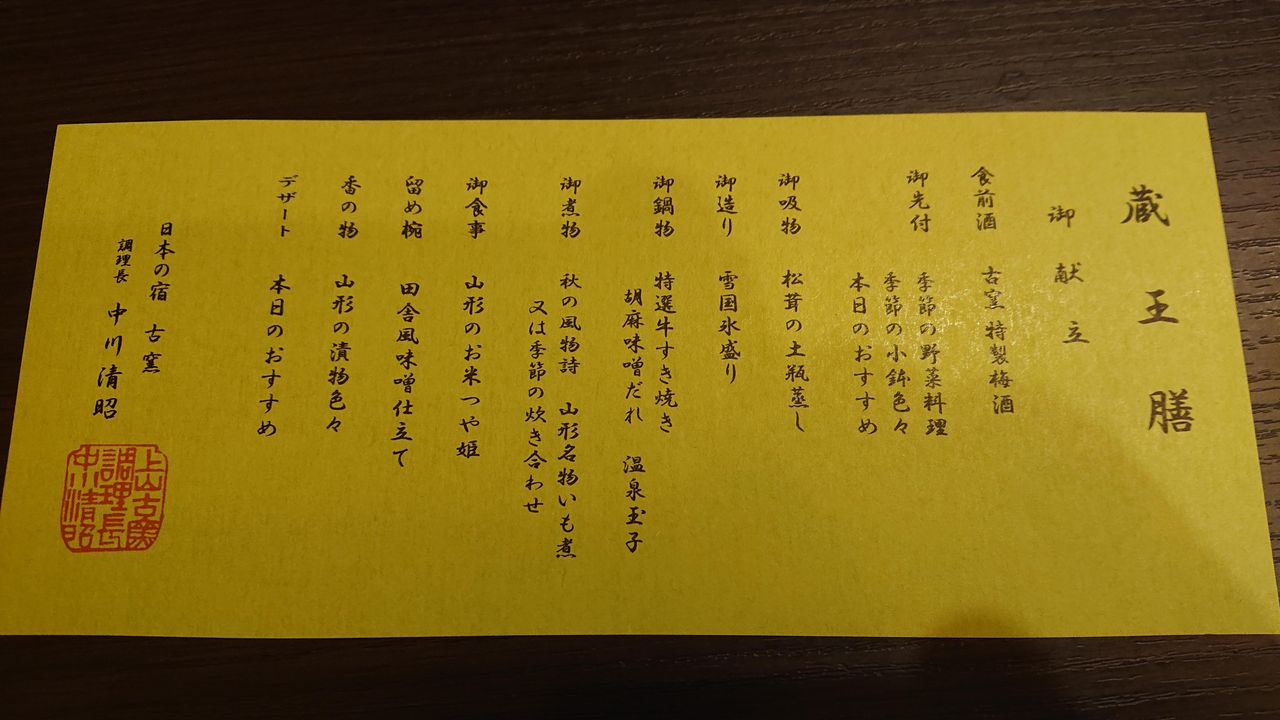 蔵王膳
御献立
食前酒 古窯 特製梅酒
御先付 季節の野菜料理
季節の小鉢色々
本日のおすすめ
御吸物 松茸の土瓶蒸し
御造り 雪国氷盛り
御鍋物 特選牛すき焼き
胡麻味噌だれ 温泉玉子
御煮物 秋の風物詩 山形名物いも煮
又は季節の炊き合わせ
御食事 山形のお米つや姫
留め椀 田舎風味噌仕立て
香の物 山形の漬物色々
デザート 本日のおすすめ
日本の宿 古窯
調理長 中川清昭
上山古窯
調理長
中川清昭